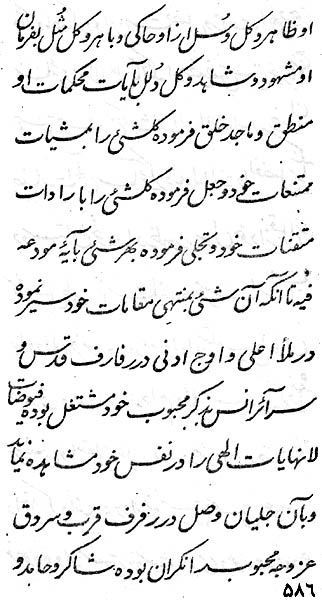 او ظاهر و کل رسل از او حاکی و با هر و کل مثل بفرمان
او مشهود و شاهد و کل دلل بآیات محکمات او
منطق و ماجد خلق فرموده کلشیء را بمشیات
ممتنعات خود و جعل فرموده کلشیء را بارادات
متقنات خود و تجلی فرموده بهر شیء بآیهٔ مودعه
فیه تا آنکه آن شیء بمنتهی مقامات خود سیر نموده
در ملأ اعلی و اوج ادنی در رفارف قدس و
سرآئر انس بذکر محبوب خود مشتغل بوده فیوضات
لانهایات الهی را در نفس خود مشاهده نماید
و بآن جلیان وصل در رفرف قرب و سردق
عز وجه محبوب نگران بوده شاکر و حامد و
۵۸۶